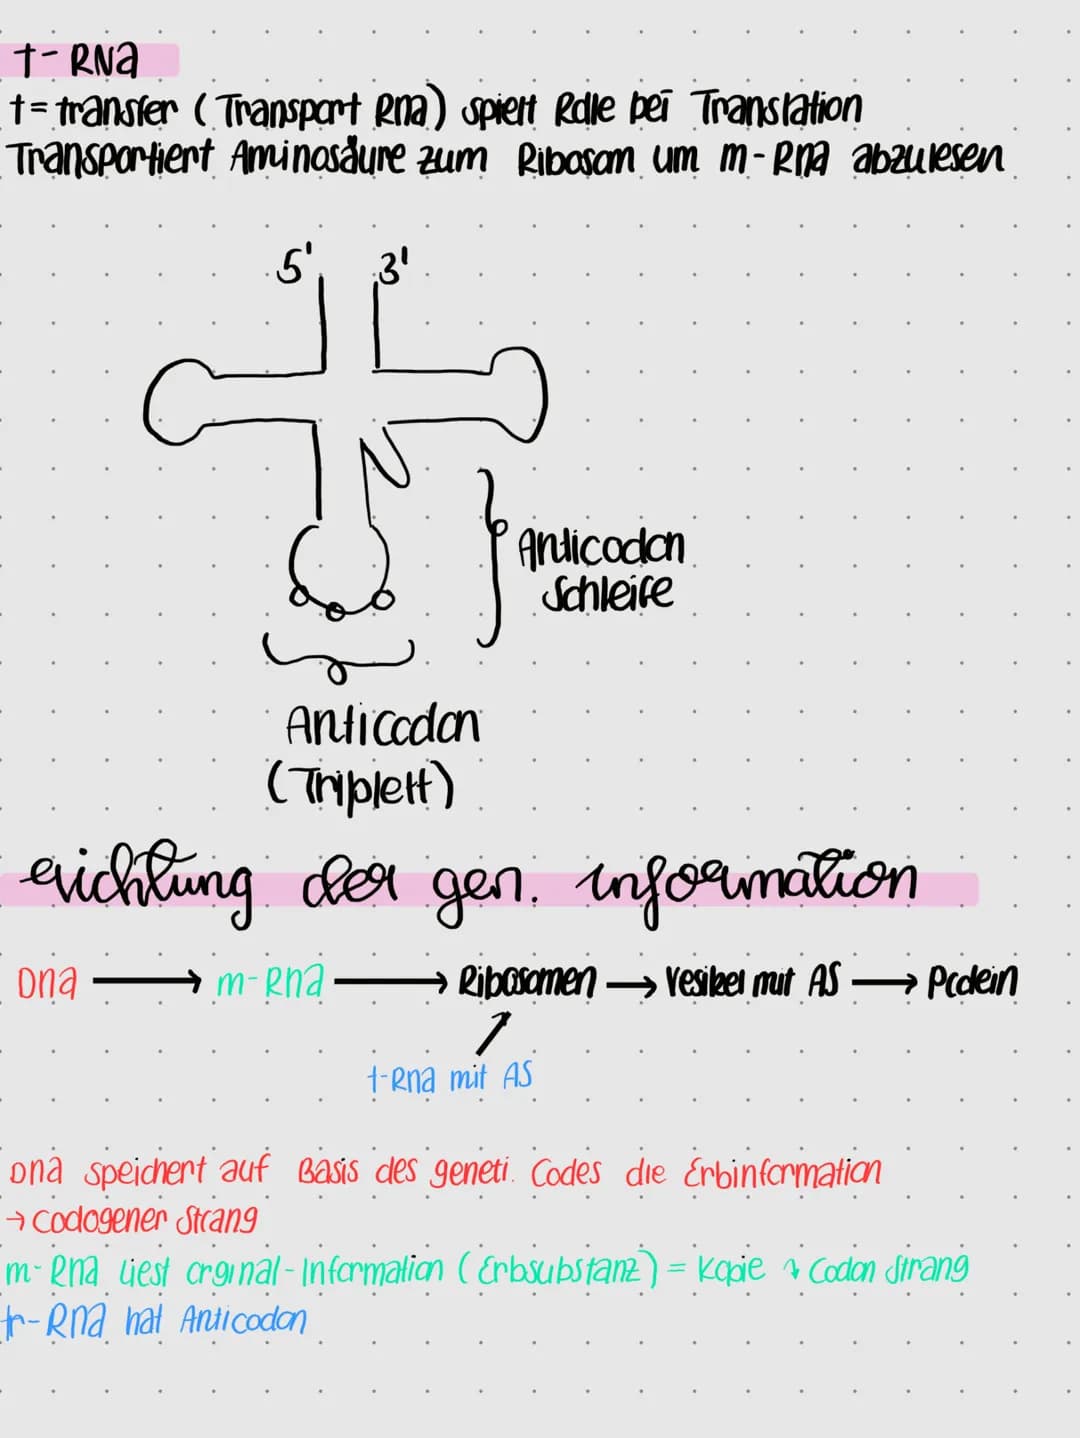 t-RNa
t= transfer (Transport Rna) spielt Rolle bei Translation
Transportiert Aminosäure zum Ribosom um m-Rna abzulesen
5' 3'
Anticodon
Schleife
Anticodon
(Triplett)
erichtung der gen. information
Dna → m-Rna → Ribosomen → Vesikel mit AS → Protein
t-Rna mit AS
Dna speichert auf Basis des geneti. Codes die Erbinformation
→ Codogener Strang
m-Rna liest orginal-Information (Erbsubstanz) = Kopie → Codon Strang
tr-Rna hat Anticodon